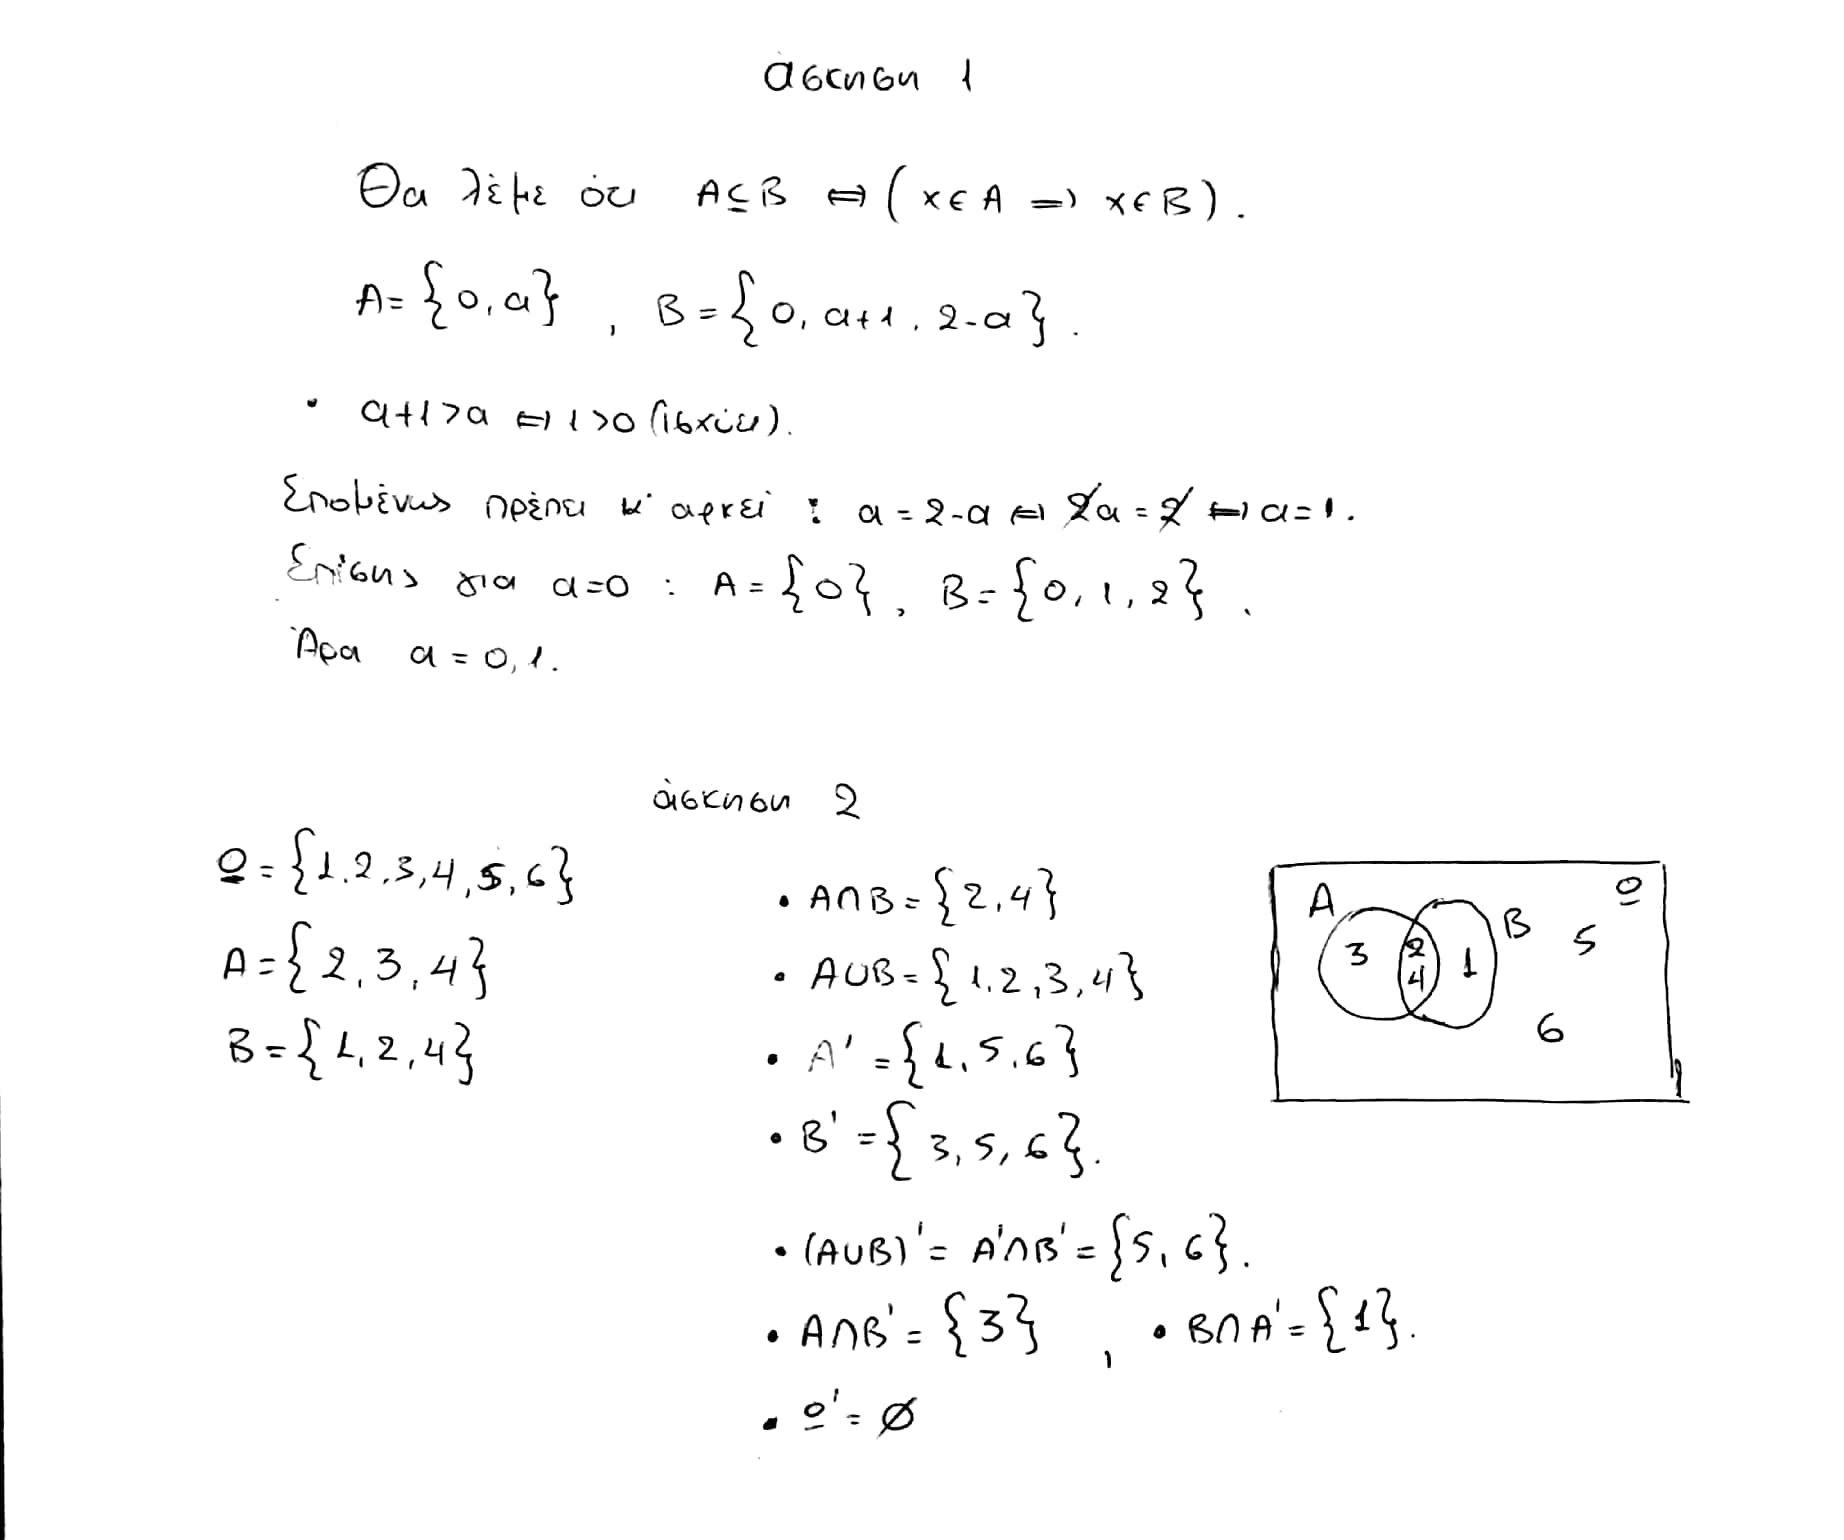 άσκηση 1
Θα λέμε ότι A⊆B ⇔ (x∈A ⇒ x∈B).
A={0,a}, B={0, a+1, 2-a}.
• a+1>a ⇔ 1>0 (ισχύει).
Επομένως πρέπει κ' αρκεί : a=2-a ⇔ 2a=2 ⇔ a=1.
Επίσης για a=0 : A={0}, B={0,1,2}.
Άρα a=0,1.
άσκηση 2
Ω={1,2,3,4,5,6}
A={2,3,4}
B={1,2,4}
• A∩B={2,4}
• A∪B={1,2,3,4}
• A'={1,5,6}
• B'={3,5,6}.
• (A∪B)'=A'∩B'={5,6}.
• A∩B'={3}, • B∩A'={1}.
• Ω'=∅
A Ω
B 5
3 2 1
4
6